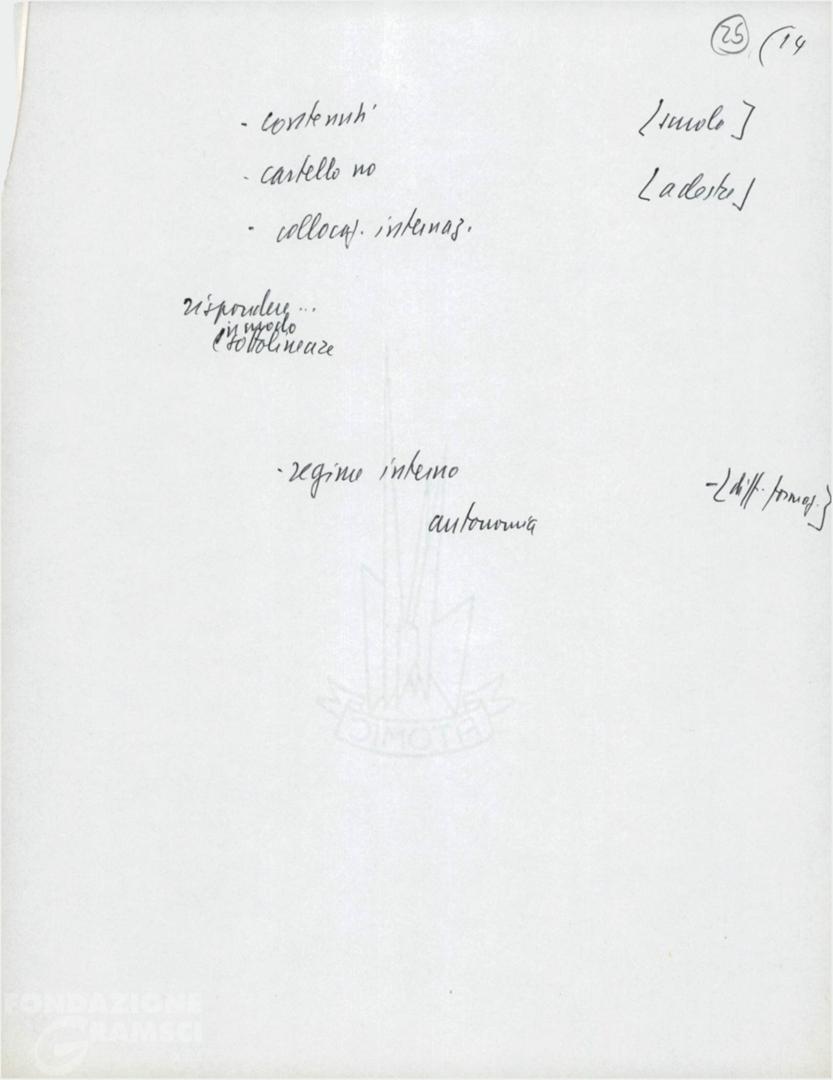 25 (14
- contenuti [smolo]
- castello no [a destra]
- collocaz. internaz.
rispondere...
in modo
e sottolineare
- regime interno -[diff. formaz.]
autonomia
FITOMIC
FONDAZIONE
GRAMSCI